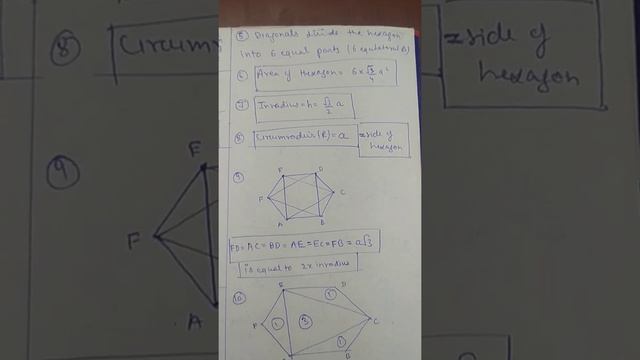 ⑤ Diagonals divide the hexagon
into 6 equal parts (6 equilateral Δ)
⑥ Area of Hexagon = 6 × √3/4 a²
⑦ Inradius = h = √3/2 a
⑧ Circumradius (R) = a = side of
hexagon
⑨
F D
F C
A B
FD = AC = BD = AE = EC = FB = a√3
is equal to 2x inradius
⑩
E D
F ① ③ ① C
① B
⑧ Circumr
= side of
hexagon
⑨
F
F
A